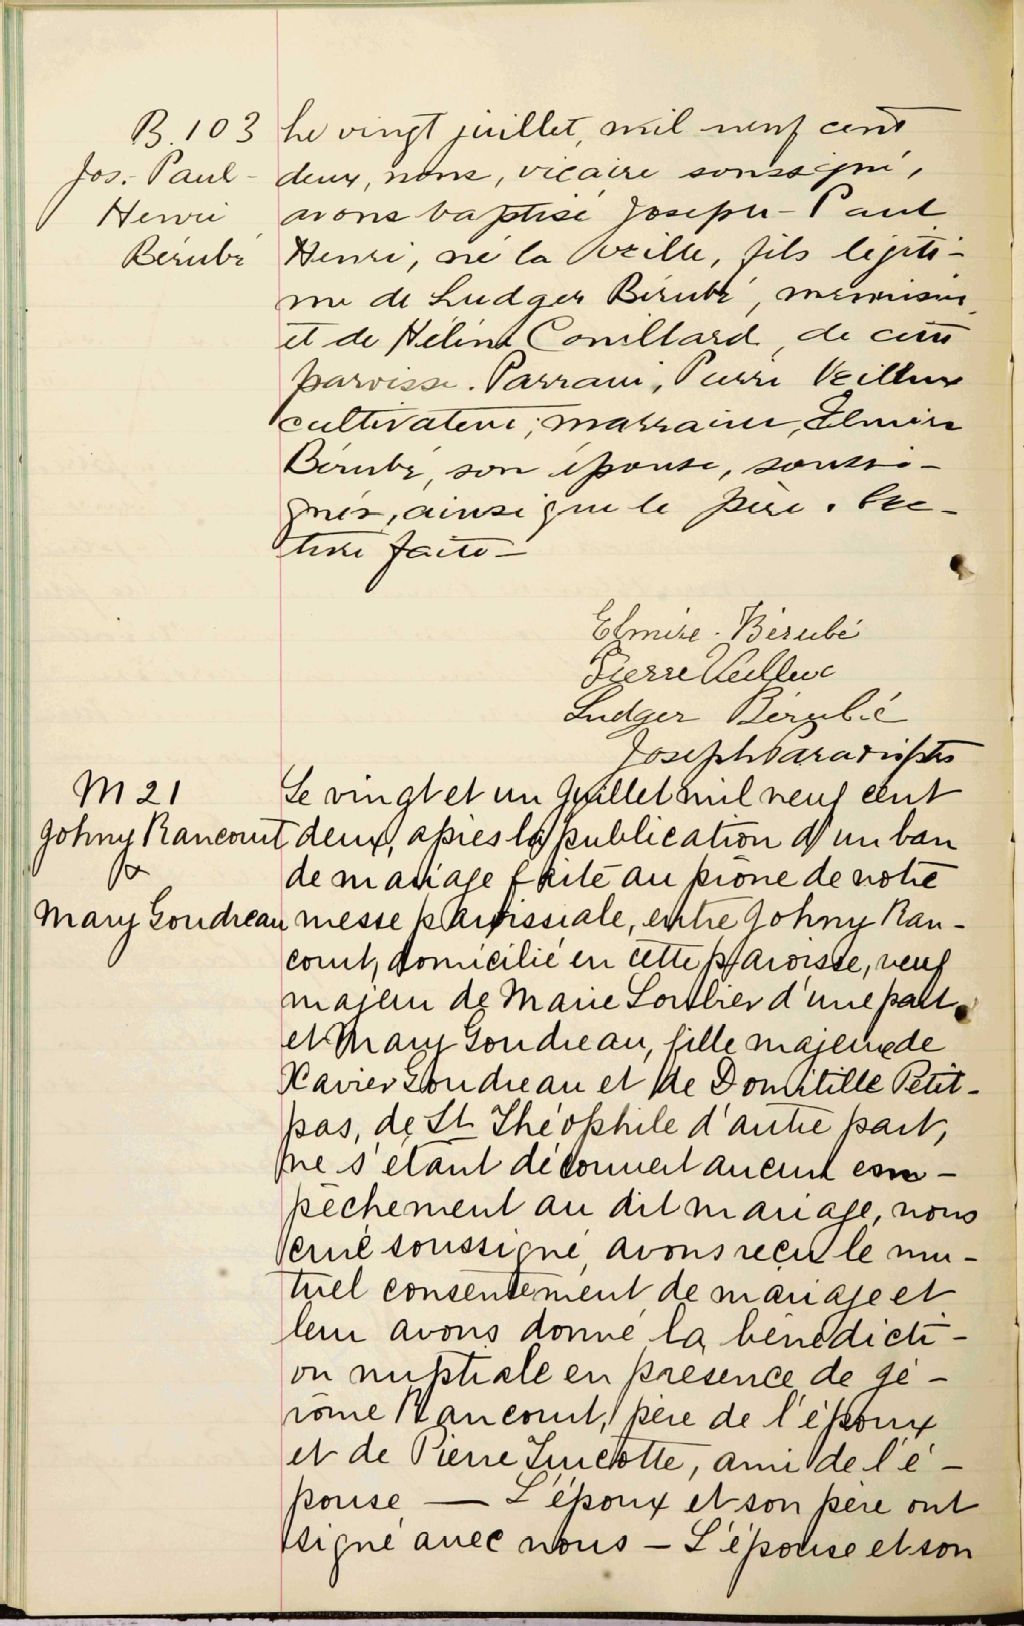 B. 103
Jos. Paul-
Henri
Bérubé
Le vingt juillet, mil neuf cent
deux, nous, vicaire soussigné,
avons baptisé Joseph-Paul
Henri, né la veille, fils légiti-
me de Ludger Bérubé, menuisier,
et de Hélène Couillard, de cette
paroisse. Parrain, Pierre Veilleux
cultivateur; marraine, Elmire
Bérubé, son épouse, soussi-
gnés, ainsi que le père. Lec-
ture faite-
Elmire. Bérubé
Pierre Veilleux
Ludger Bérubé
Joseph Paradis ptre
M 21
Johny Rancourt
&
Mary Goudreau
Le vingt et un Juillet mil neuf cent
deux, après la publication d'un ban
de mariage faite au prône de notre
messe paroissiale, entre Johny Ran-
court, domicilié en cette paroisse, veuf
majeur de Marie Loubier d'une part,
et Mary Goudreau, fille majeure de
Xavier Goudreau et de Domitille Petit-
pas, de St Théophile d'autre part,
ne s'étant découvert aucun em-
pêchement au dit mariage, nous
curé soussigné, avons reçu le mu-
tuel consentement de mariage et
leur avons donné la bénédicti-
on nuptiale en présence de Gé-
rôme Rancourt, père de l'époux
et de Pierre Turcotte, ami de l'é-
pouse — L'époux et son père ont
signé avec nous — L'épouse et son